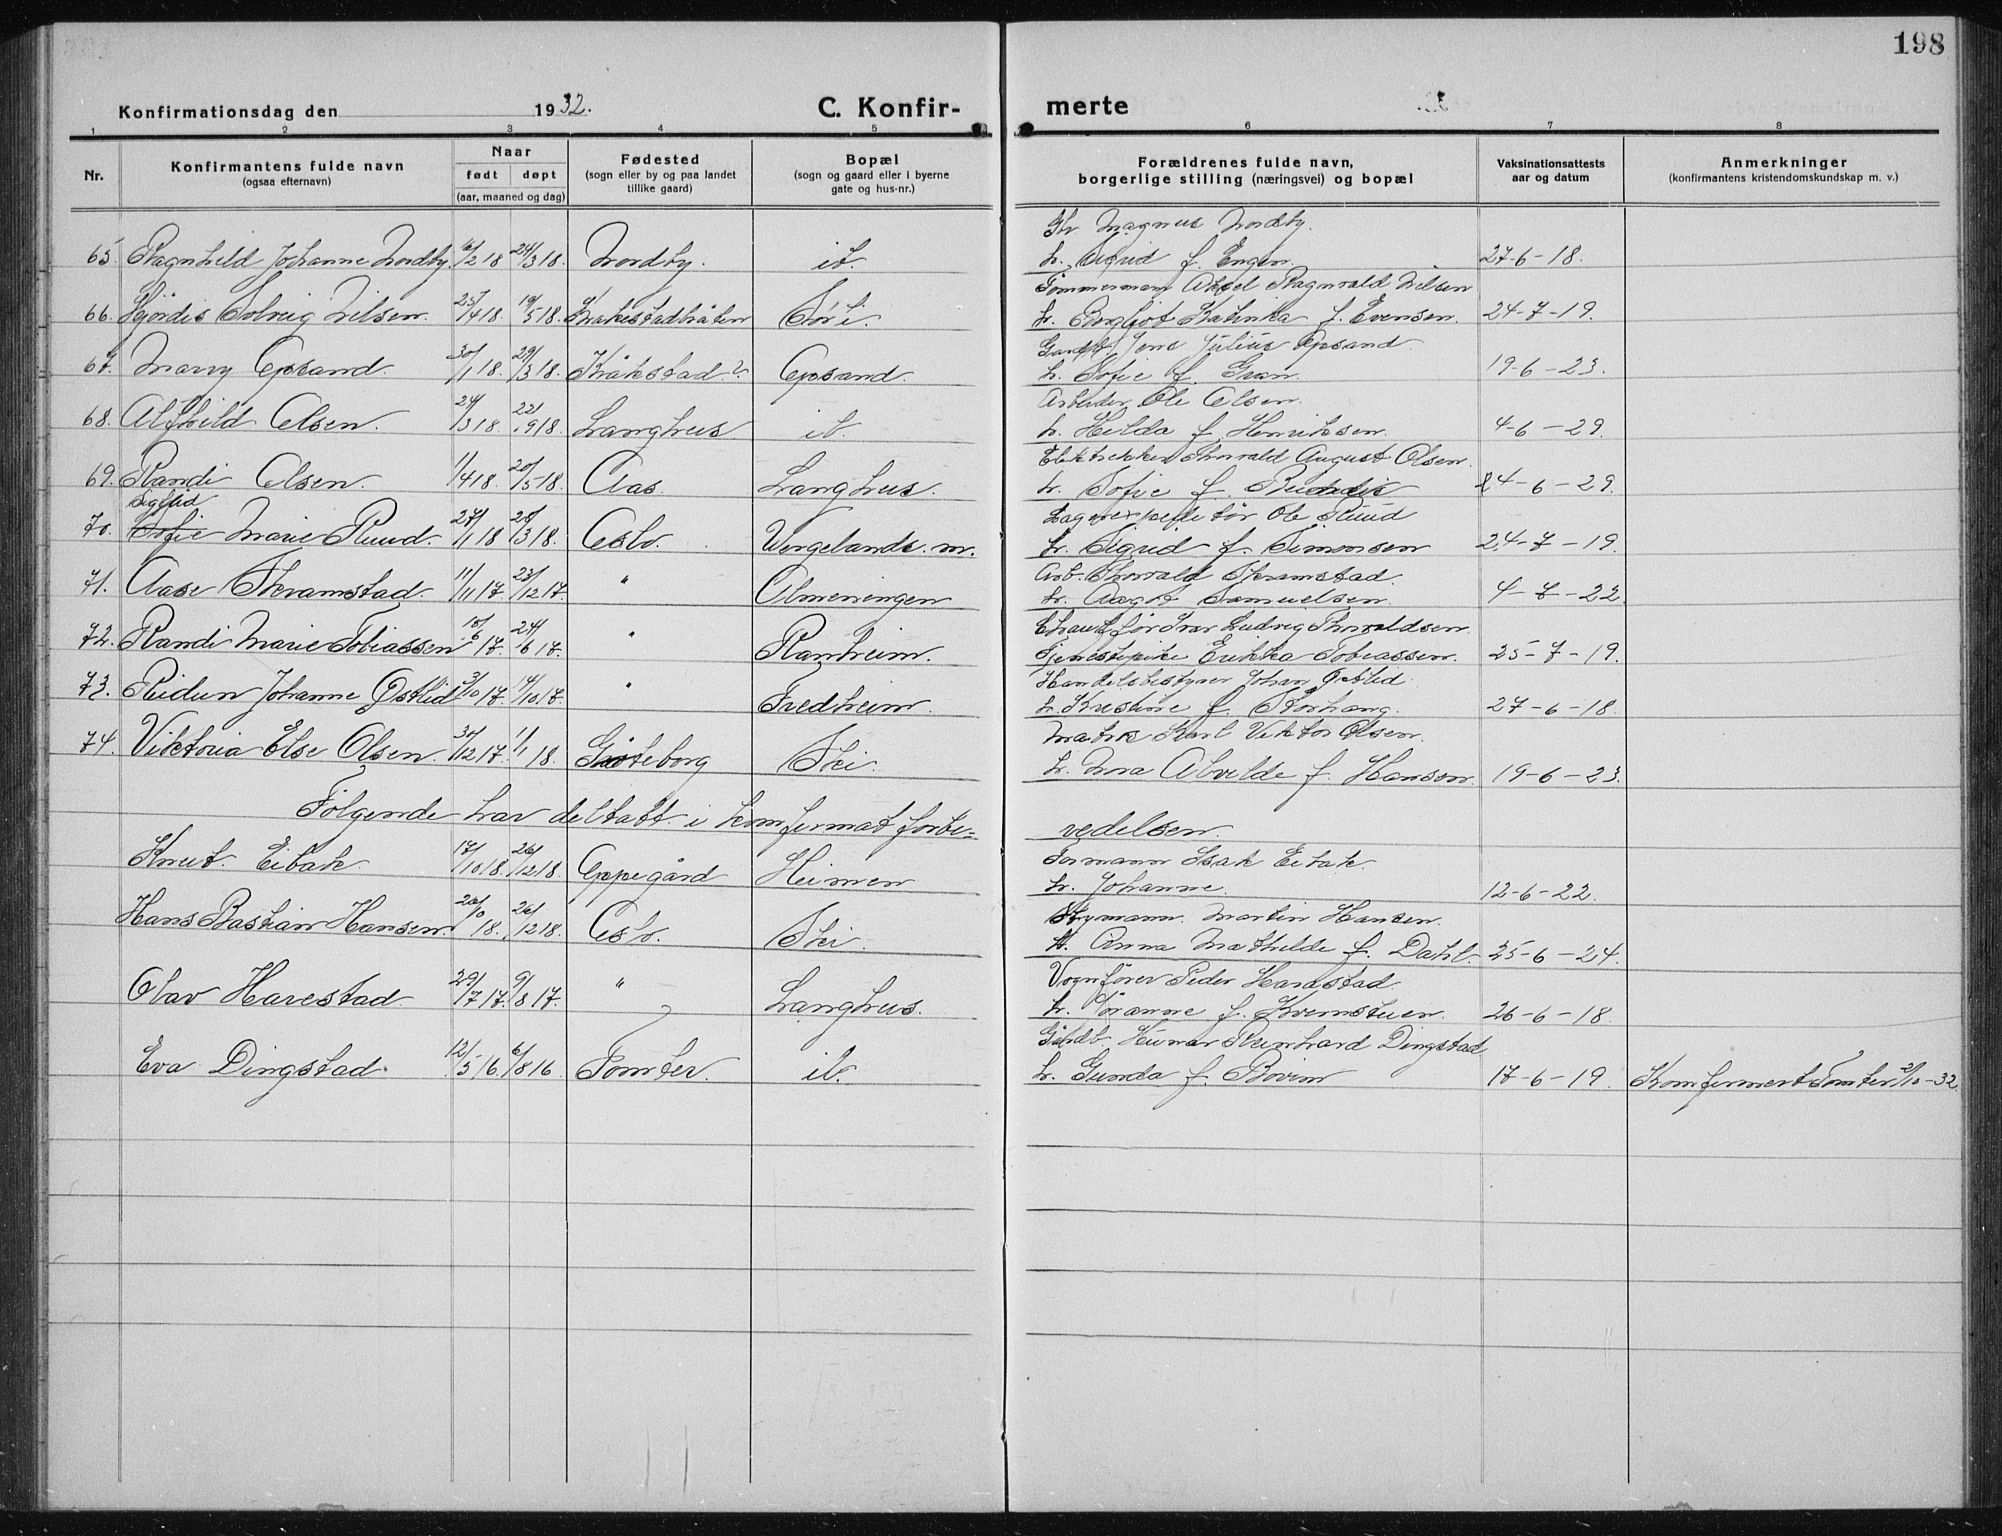 198
Konfirmationsdag den 1932. C. Konfir- merte
1 2 3 4 5 6 7 8
Nr. Konfirmantens fulde navn (ogsaa efternavn) Naar født døpt (aar, maaned og dag) Fødested (sogn eller by og paa landet tillike gaard) Bopæl (sogn og gaard eller i byerne gate og hus-nr.) Forældrenes fulde navn, borgerlige stilling (næringsvei) og bopæl Vaksinationsattests aar og datum Anmerkninger (konfirmantens kristendomskundskap m. v.)
Gbr. Magnus Nordby.
65. Ragnhild Johanne Nordby. 16/2 18 24/3 18. Nordby. ib. h. Sigrid f. Engen. 27-6-18.
Tømmermann Aksel Ragnvald Nilsen
66. Hjørdis Solveig Nilsen. 25/4 18. 19/5 18. Kråkstadbråten h. Bergljot Katinka f. Evensen. 24-7-19.
Gardb. Jens Julius Opsand.
67. Marry Opsand. 30/1 18. 29/3 18. Kråkstad? Opsand. h. Sofie f. Gran. 19-6-23.
Arbeider Ole Olsen.
68. Alfhild Olsen. 24/3 18. 22/9 18. Langhus ib. h. Hilda f. Henriksen. 4-6-29.
Elektriker Thorvald August Olsen.
69. Randi Olsen. 1/4 18. 20/5 18. Aas. Langhus. h. Sofie f. 24-6-29.
Sigfrid Lagerexpeditør Ole Ruud
70. Sofie Marie Ruud. 27/1 18 28/3 18. Oslo. Wergelands. m. h. Sigrid f. Simonsen 24-7-19.
Arb. Thorvald Skramstad.
71. Aase Skramstad. 11/11 17 23/12 17. " Almeningen h. Aagot Samuelsen. 4-7-22.
Chauffør Ivar Ludvig Thorvaldsen.
72. Randi Marie Tobiassen 10/6 17. 24/6 17. " Ranheim. Tjenestepike Erikka Tobiassen. 25-7-19.
Handelsbestyrer Johan Østlid.
73. Reidun Johanne Østlid 3/10 17. 14/10 17. " Fredheim. h. Kristine f. Storhaug. 27-6-18.
Matr. Karl Viktor Olsen.
74. Viktoria Else Olsen. 30/12 17. 1/1 18. Gøteborg Ski. h. Nora Alvilde f. Hansen. 19-6-23.
Følgende har deltatt i konfirmat. forbe= vedelsen.
Formann Isak Eibak.
Knut. Eibak. 17/10 18. 26/12 18. Oppegård Heimen h. Johanne. 12-6-22.
Styrmann. Martin Hansen.
Hans Bastian Hansen. 20/10 18. 26/12 18. Oslo. Ski. h. Anna Mathilde f. Dahl. 25-6-24.
Vognfører Peder Harestad
Olav Harestad 29/7 17. 9/8 17. " Langhus. h. Jøranne f. Kvernstuen. 26-6-18.
Gårdb. Reinhard Dingstad
Eva Dingstad. 12/5 16. 6/8 16 Tomter. ib. h. Gunda f. Bovim 17-6-19. Konfirmert Tomter 2/10-32.